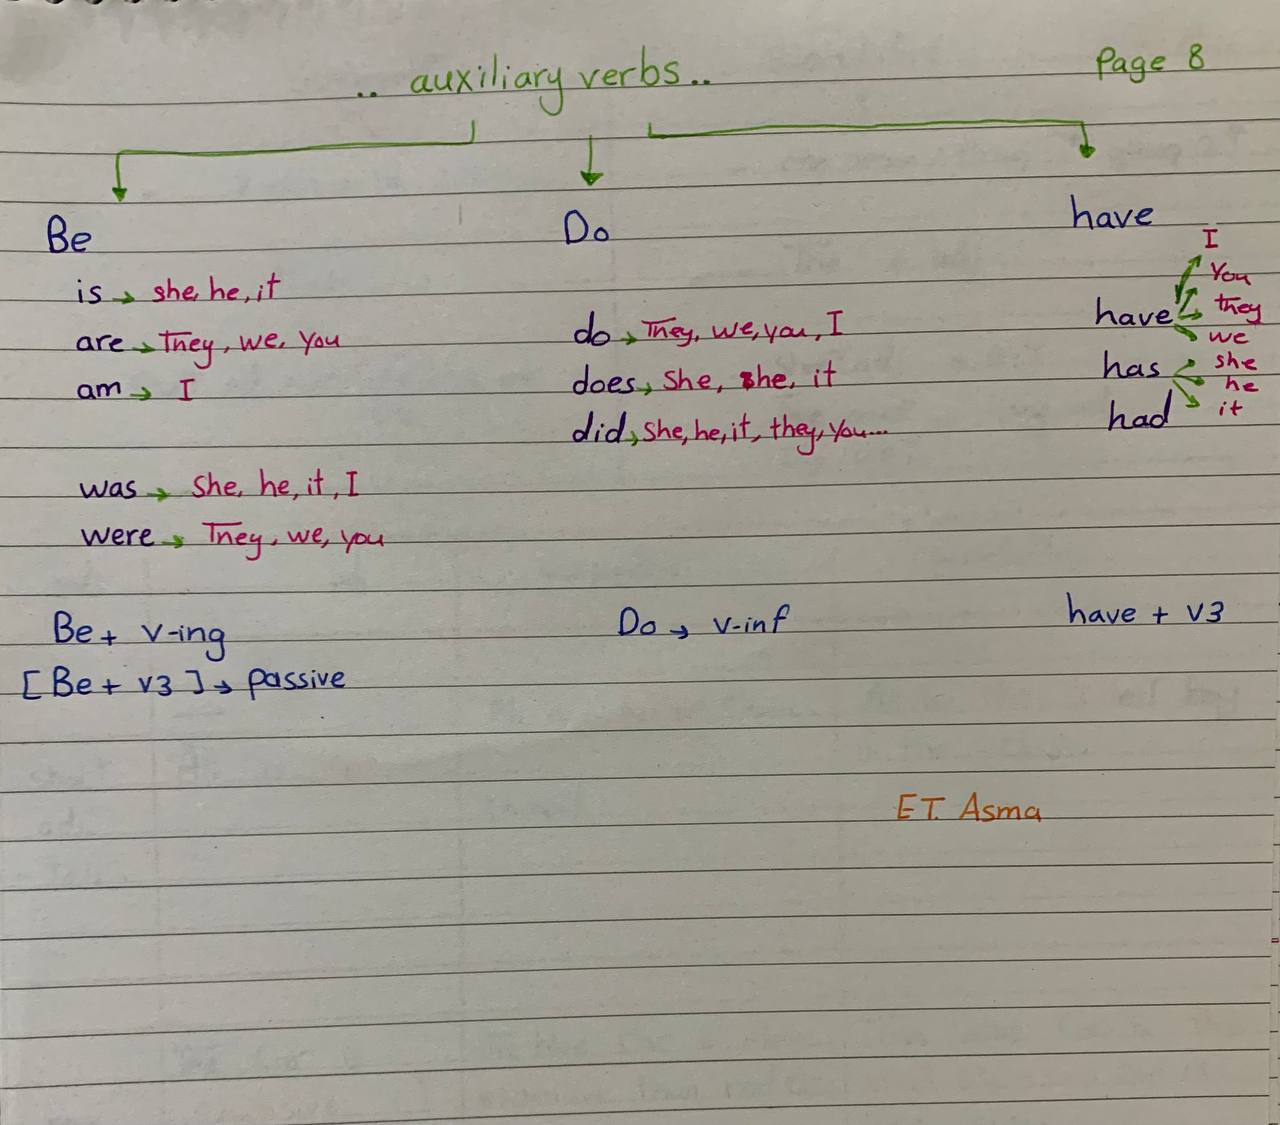 .. auxiliary verbs..
Page 8
Be
is → she, he, it
are → They, we, you
am → I
was → She, he, it, I
were → They, we, you
Be + v-ing
[Be + v3] → passive
Do
do → They, we, you, I
does → She, she, it
did → She, he, it, they, you...
Do → v-inf
have
have → I
You
they
we
has → she
he
it
had
have + v3
ET. Asma